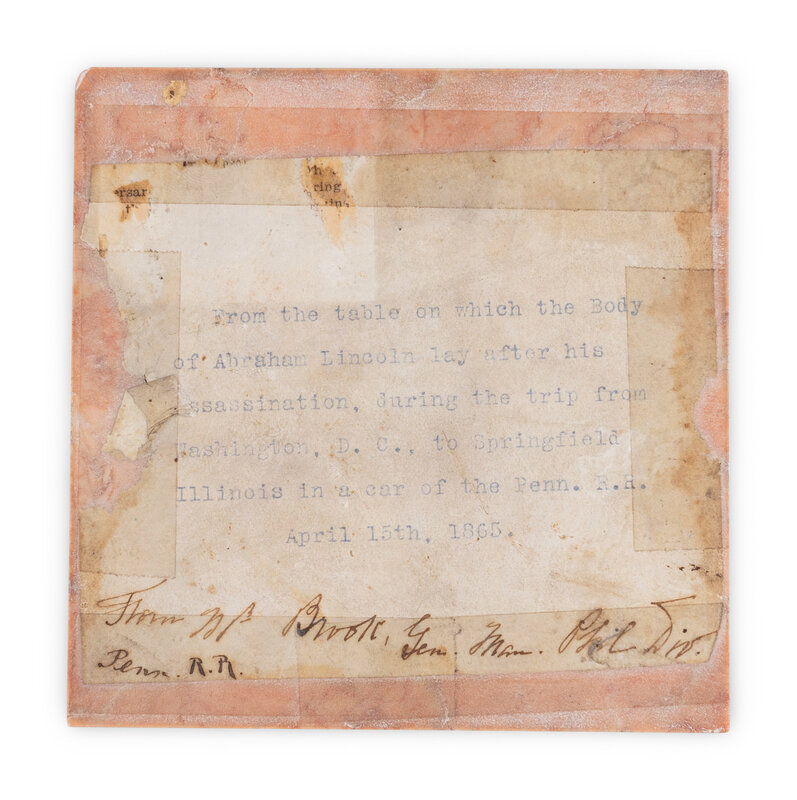 ersar
ring
From the table on which the Body
of Abraham Lincoln lay after his
ssassination, during the trip from
Washington, D. C., to Springfield
Illinois in a car of the Penn. R.R.
April 15th, 1865.
From Brook, Gen. Man. Phil Div.
Penn. R.R.